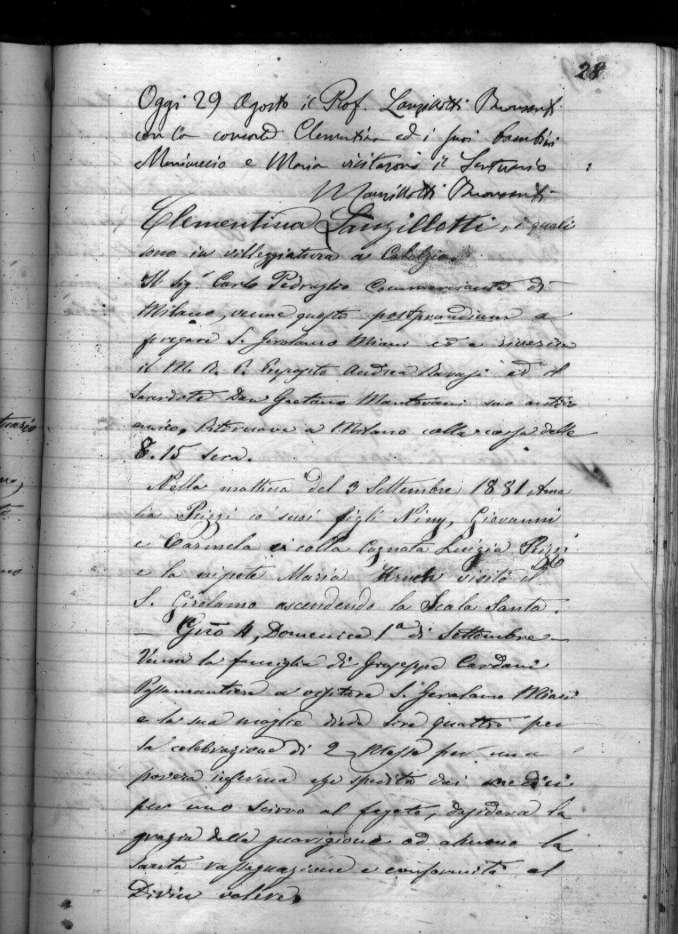 28
Oggi 29 Agosto il Prof. Lanzillotti
con la Clementina ed i suoi bambini
e Maria visitarono il Santuario
Lanzillotti
Clementina Lanzillotti, i quali
sono in villeggiatura a Calolzio.
Il Sig.r Carlo Pedraglio Commerciante di
Milano, venne questo postprandium a
pregare S. Gerolamo Miani ed a riverire
il M. R. P. Andrea Ravasi ed il
Sacerdote Don Gaetano Mantovani suo antico
amico, Ritornava a Milano colla corsa delle
8.15 sera.
Nella mattina del 3 Settembre 1881 Ama
lia Pizzi co' suoi figli Niny, Giovanni
e Carmela e colla Cognata Luigia Pizzi
e la nipote Maria visitò il
S. Girolamo ascendendo la Scala Santa.
— Gno 4, Domenica 1a di Settembre —
Venne la famiglia di Giuseppe Cardani
a visitare S. Gerolamo Miani
e la sua moglie diede lire quattro per
la celebrazione di 2 Messe per una
povera inferma spedita dai medici
per uno scirro al fegato, desidera la
grazia della guarigione od almeno la
santa rassegnazione e conformità al
Divin volere.